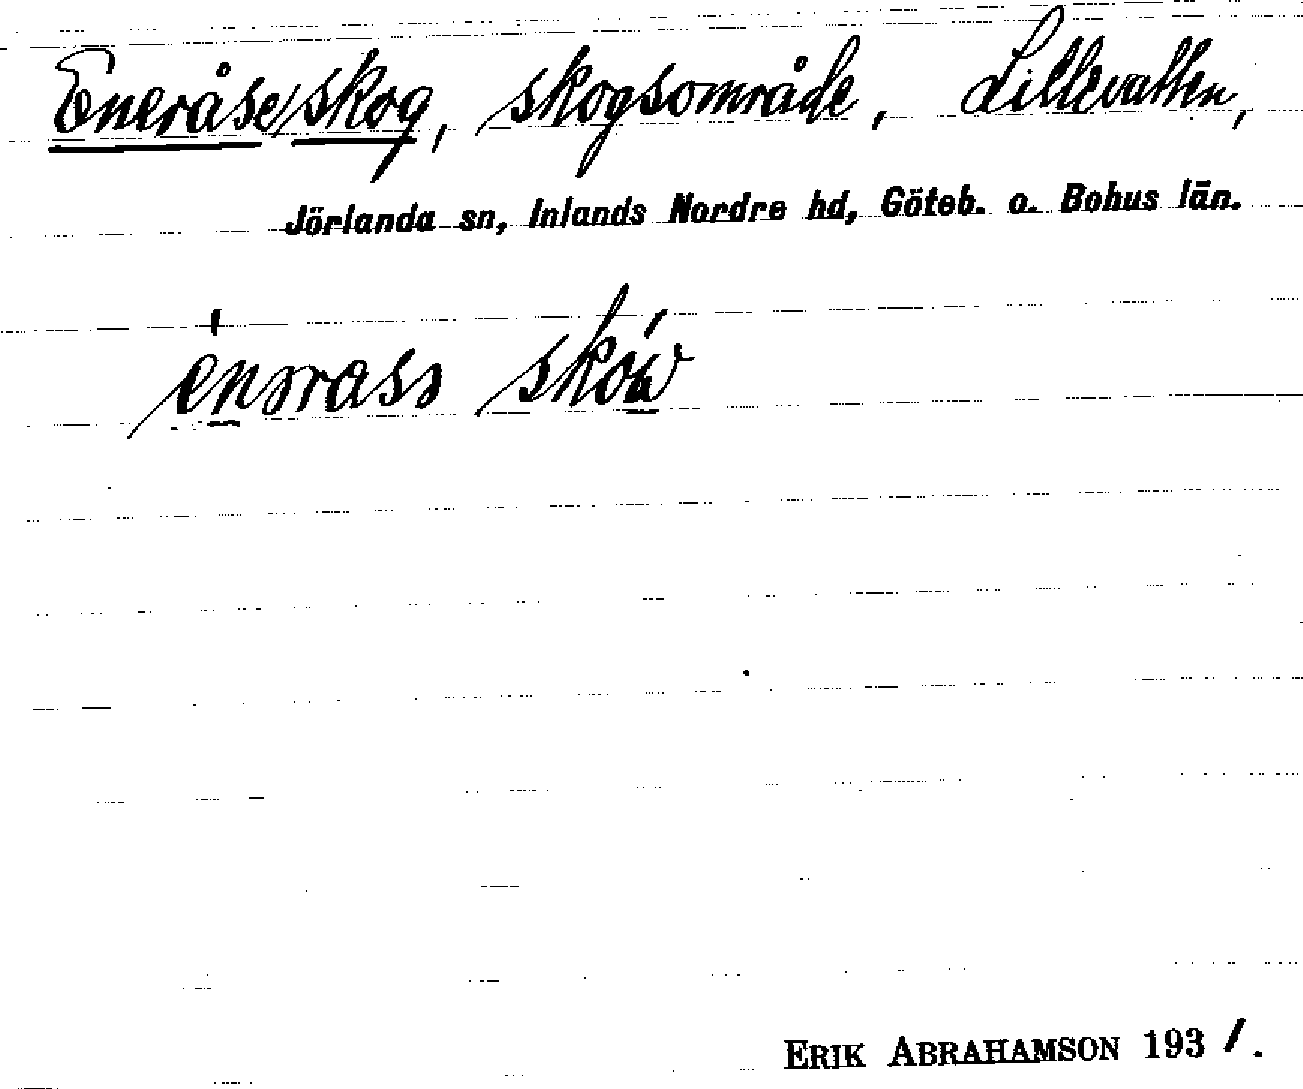 Eneråse/skog, skogsområde, Lillevatten,
Jörlanda sn, Inlands Nordre hd, Göteb. o. Bohus län.
ERIK ABRAHAMSON 1931.